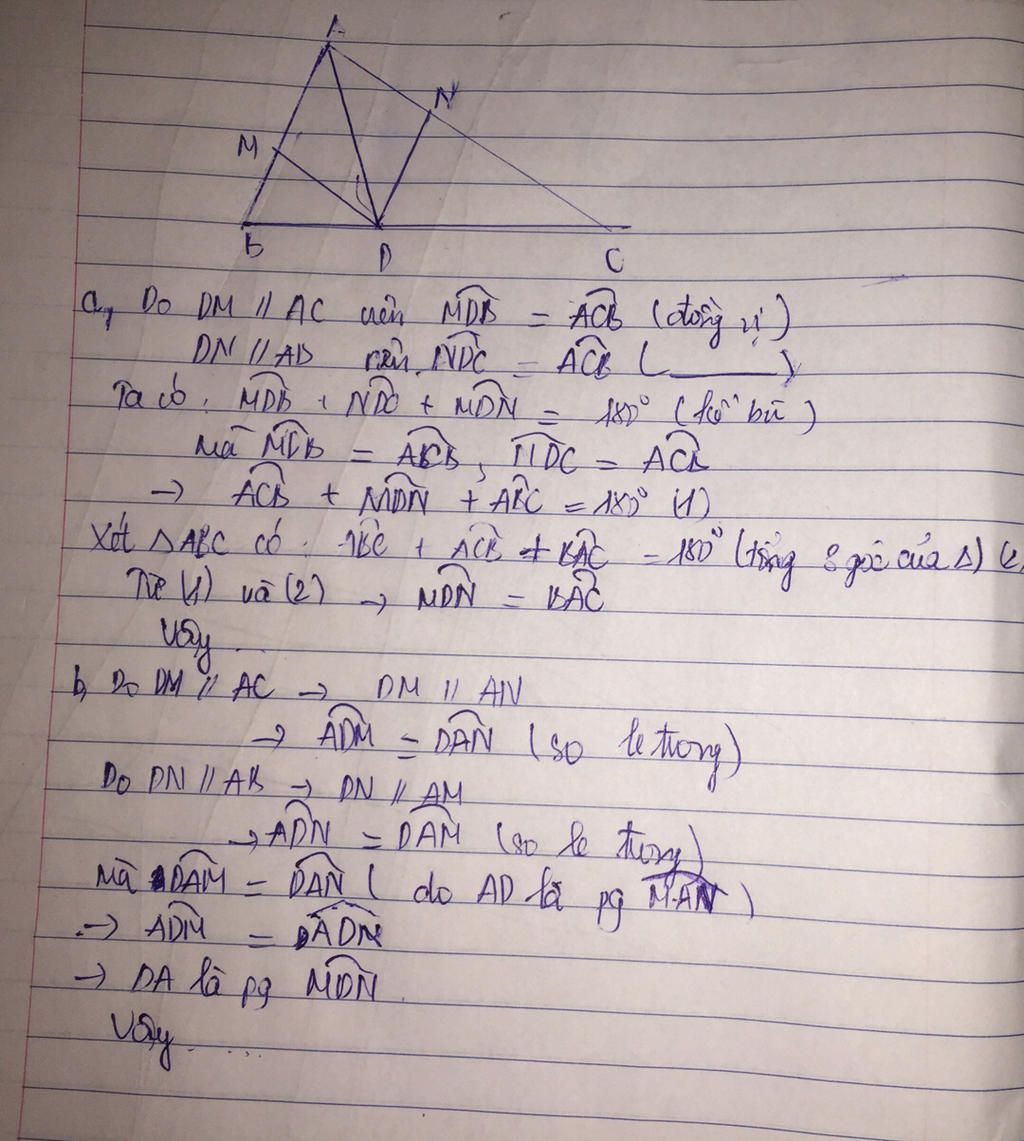 A
N
M
B
D
C
a, Do DM // AC nên \widehat{MDB} = \widehat{ACB} (đồng vị)
DN // AB nên \widehat{NDC} = \widehat{ACB} (———)
Ta có: \widehat{MDB} + \widehat{NDC} + \widehat{MDN} = 180° (kề bù)
Mà \widehat{MDB} = \widehat{ACB}, \widehat{NDC} = \widehat{ACB}
→ \widehat{ACB} + \widehat{MDN} + \widehat{ABC} = 180° (1)
Xét ΔABC có: \widehat{ABC} + \widehat{ACB} + \widehat{BAC} = 180° (tổng 3 góc của Δ) (2)
Từ (1) và (2) → \widehat{MDN} = \widehat{BAC}
Vậy ...
b, Do DM // AC → DM // AN
→ \widehat{ADM} = \widehat{DAN} (so le trong)
Do DN // AB → DN // AM
→ \widehat{ADN} = \widehat{DAM} (so le trong)
Mà \widehat{DAM} = \widehat{DAN} (do AD là pg \widehat{MAN})
→ \widehat{ADM} = \widehat{ADN}
→ DA là pg \widehat{MDN}.
Vậy .....